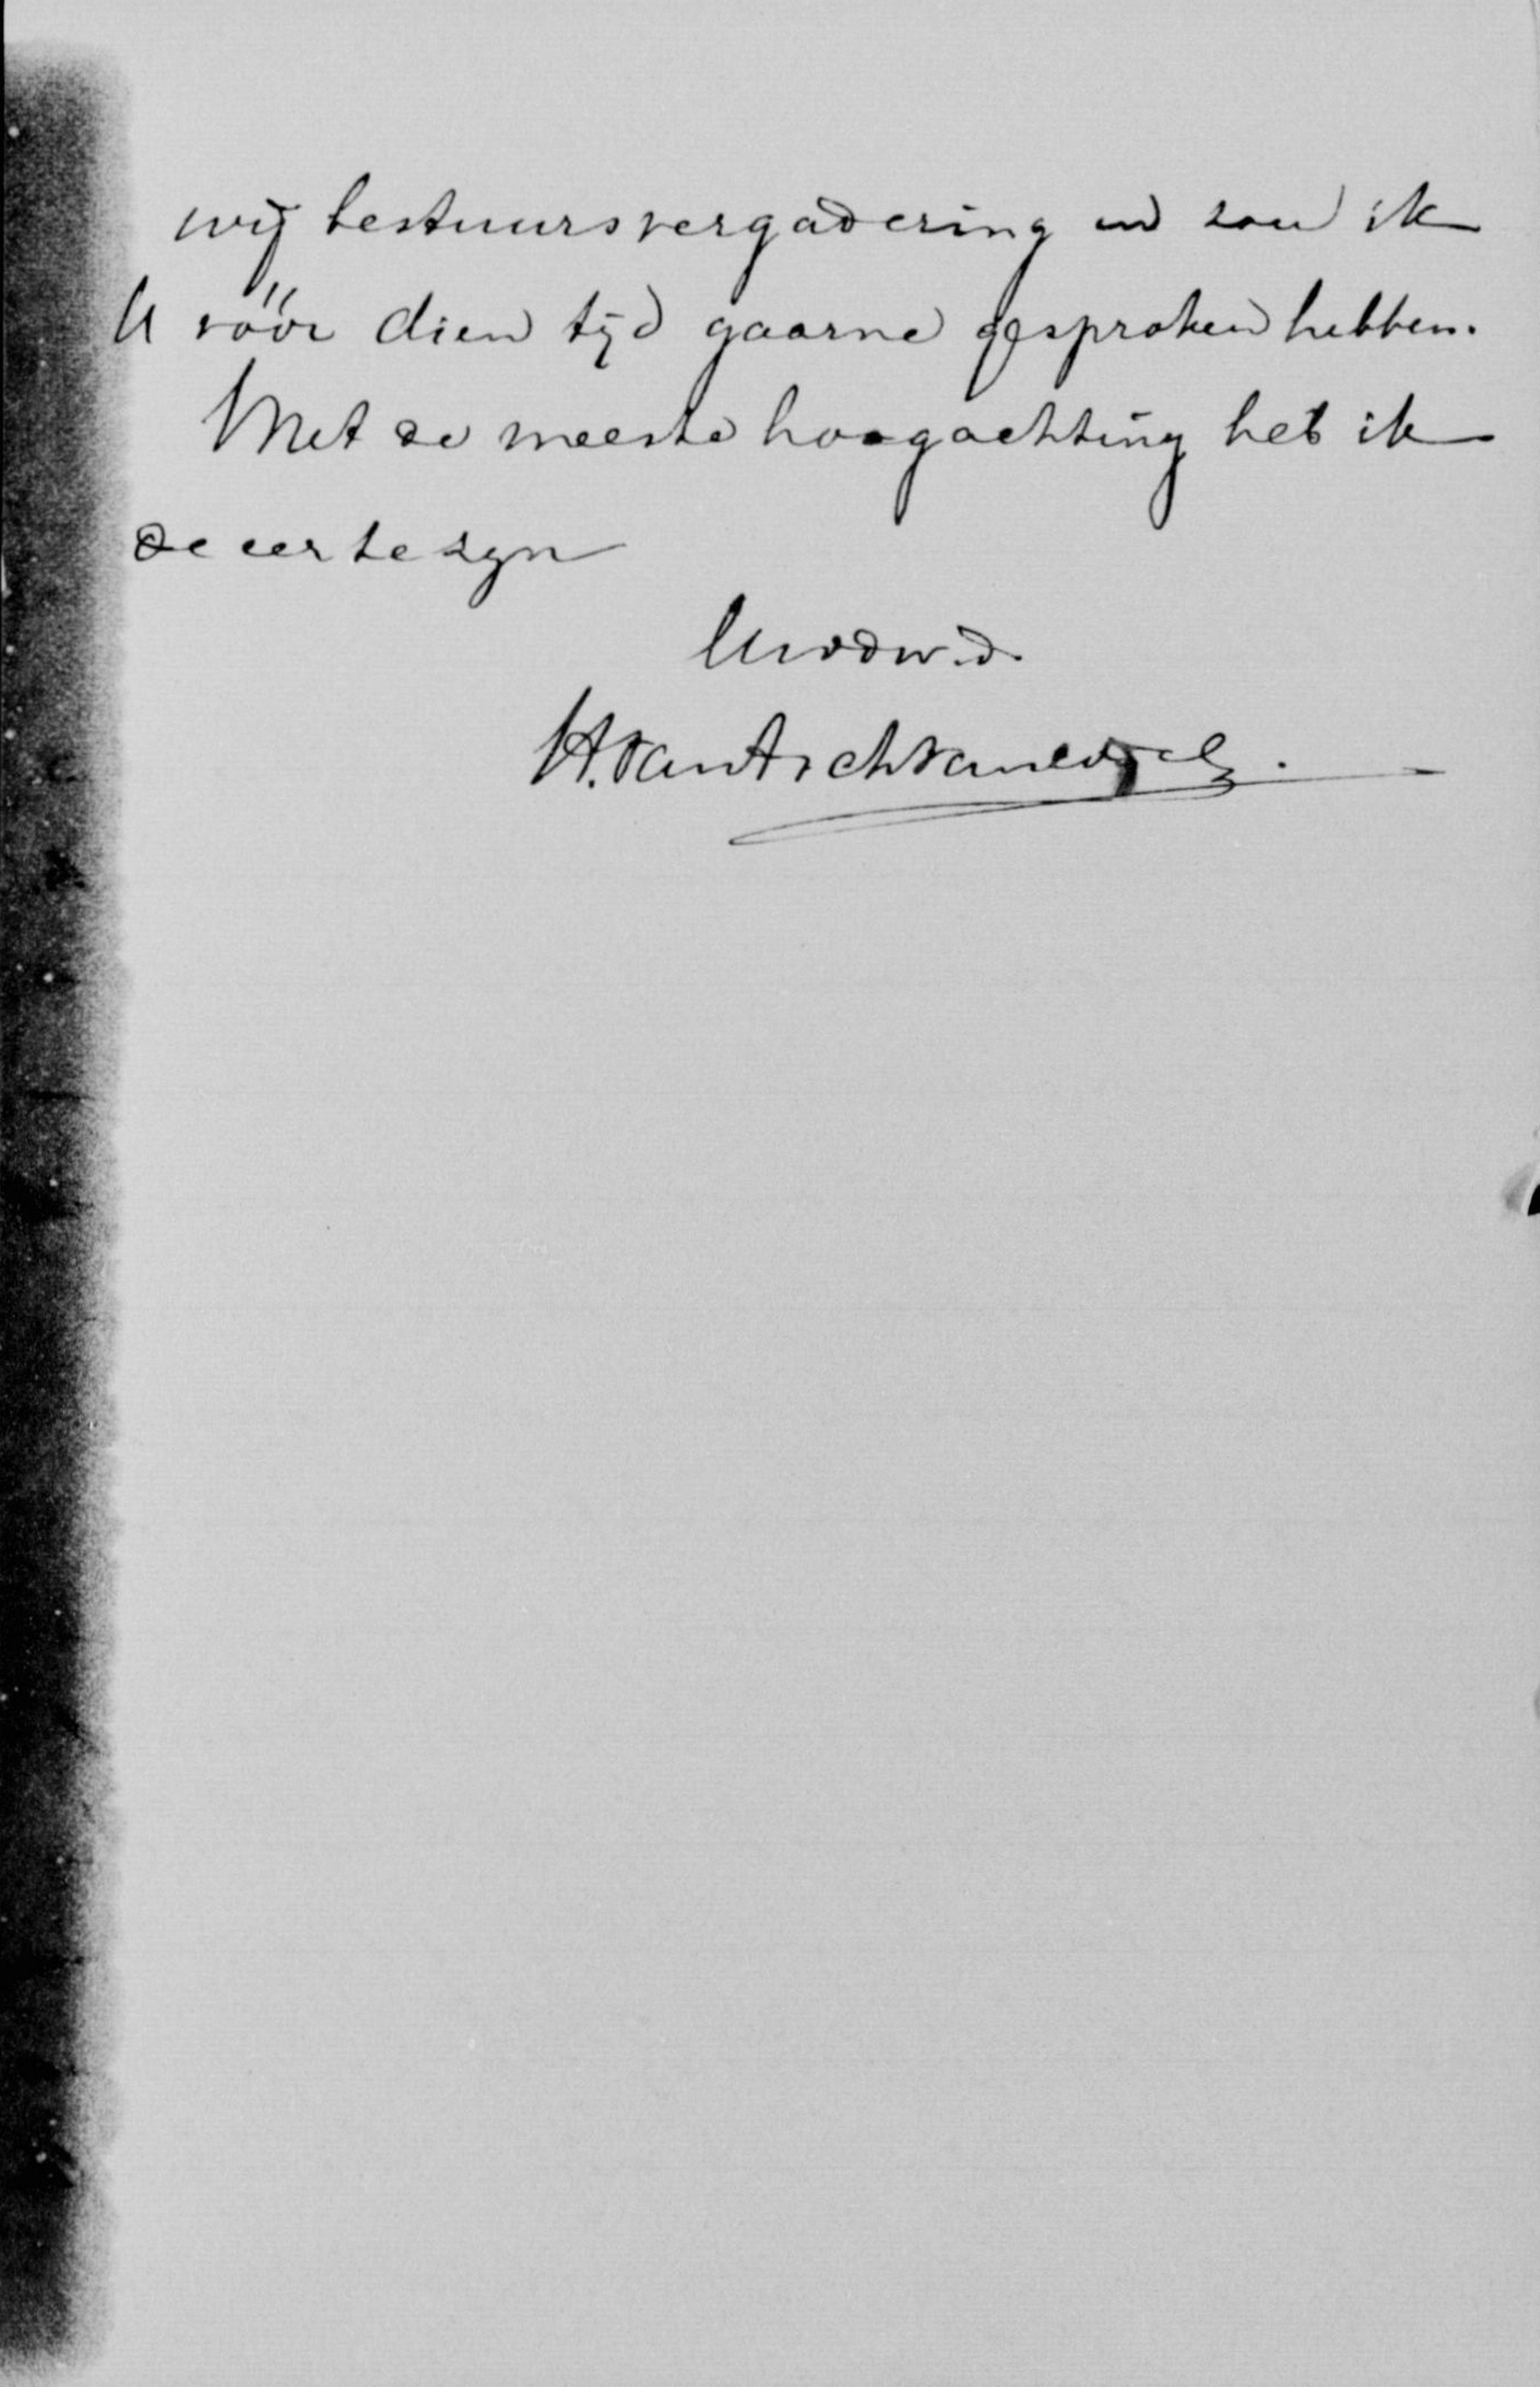 wij bestuursvergadering en zou ik
U vóór dien tijd gaarne gesproken hebben.
Met de meeste hoogachting heb ik
de eer te zyn
Uwdw.d.
H. van